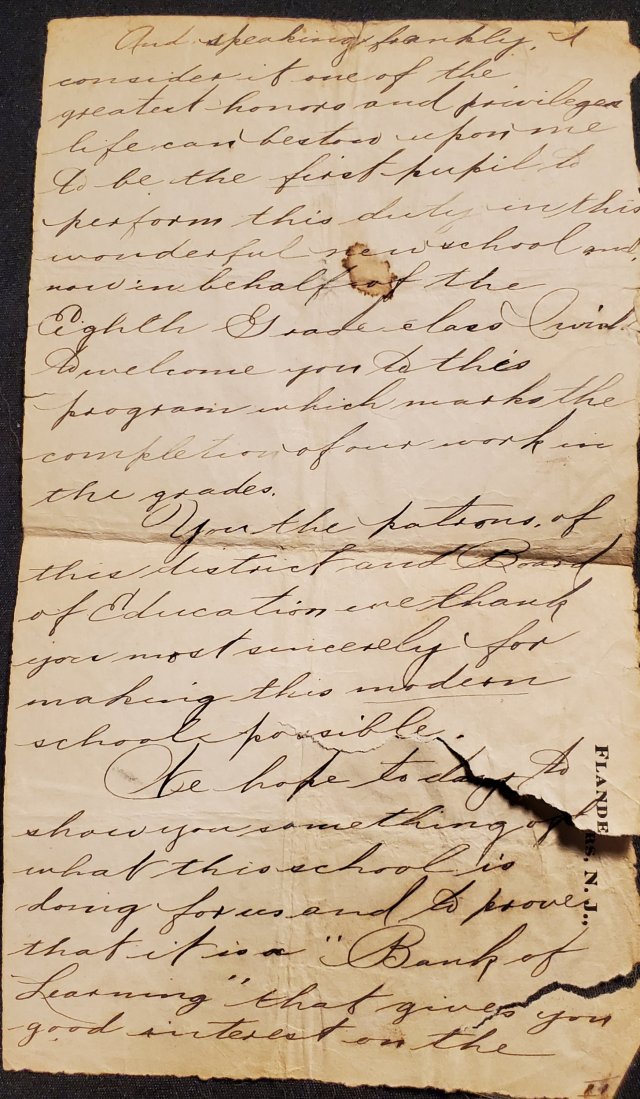 And speaking frankly, I
consider it one of the
greatest honors and privileges
life can bestow upon me
to be the first pupil to
perform this duty in this
wonderful new school and,
now in behalf of the
Eighth Grade class I wish
to welcome you to this
program which marks the
completion of our work in
the grades.
You the patrons, of
this district and Board
of Education we thank
you most sincerely for
making this modern
school possible.
We hope today, to
show you something of
what this school is
doing for us and to prove
that it is a "Bank of
Learning" that gives you
good interest on the
FLANDERS, N. J.,